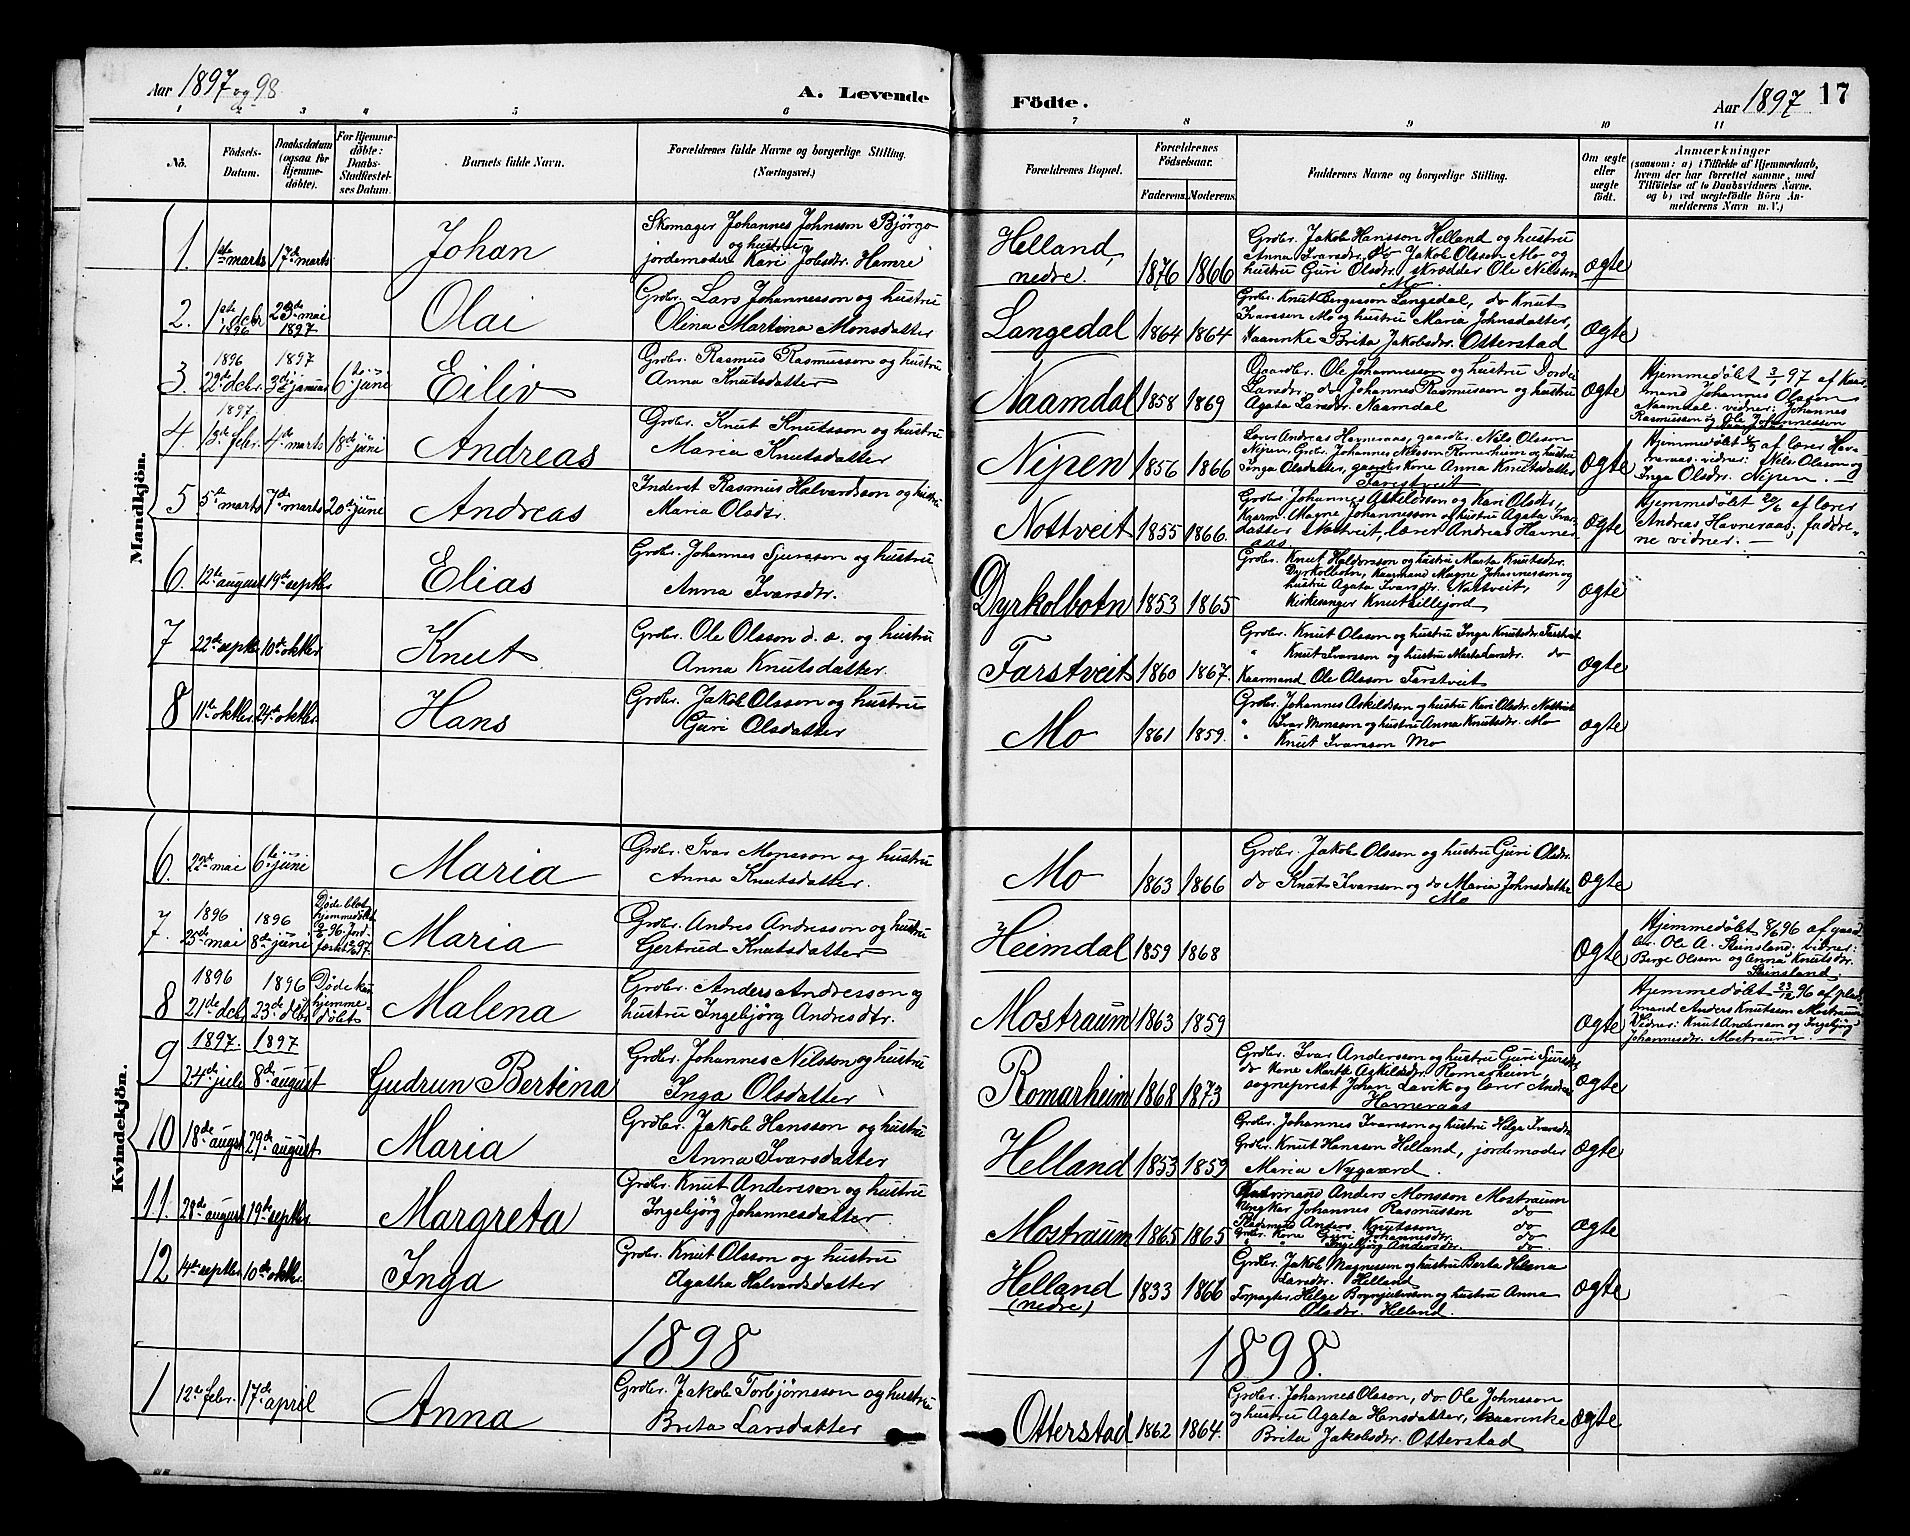 Aar 1897 og 98. A. Levende
1 2 3 4 5 6
No. Födsels-Datum. Daabsdatum (ogsaa for Hjemmedöbte). For Hjemmedöbte: Daabs-Stadfæstelses Datum. Barnets fulde Navn. Forældrenes fulde Navne og borgerlige Stilling. (Næringsvei.)
Mandkjön.
1. 1ste marts 17de marts Johan Skomager Johannes Johnsson Bjørgo
og hustru
jordemoder Kari Jobsdtr. Hamre
2. 1ste dcbr 1896 23de mai 1897 Olai Grdbr. Lars Johannesson og hustru
Olina Martina Monsdatter
3. 1896 29de dcbr. 1897 3de januar 6te juni Eiliv Grdbr. Rasmus Rasmusson og hustru
Anna Knutsdatter
4 1897 13de febr. 4de marts 18de juni Andreas Grdbr. Knut Knutsson og hustru
Maria Knutsdatter
5 5te marts 7de marts 20de juni Andreas Inderst Rasmus Halvardsson og hustru
Maria Olsdtr.
6. 12te august 19de septbr Elias Grdbr. Johannes Sjursson og hustru
Anna Ivarsdtr.
7 22de septbr 10de oktbr Knut Grdbr. Ole Olsson d. a. og hustru
Anna Knutsdatter.
8 11te oktbr. 24de oktbr. Hans Grdbr. Jakob Olsson og hustru
Guri Olsdatter
Kvindekjön.
6. 22de mai 6te juni Maria Grdbr. Ivar Monsson og hustru
Anna Knutsdatter.
7. 1896 25de mai 1896 8de juni Maria Grdbr. Andres Andresson og hustru
Gertrud Knutsdatter
8 1896 21de dcb. 1896 23de dcbr Døde kun hjemmedøbts Malena Grdbr. Anders Andresson og
hustru Ingebjørg Andresdtr.
9 1897. 24de juli 1897 8de august Gudrun Bertina Grdbr. Johannes Nilsson og hustru
Inga Olsdatter
10 18de august 29de august Maria Grdbr. Jakob Hansson og hustru
Anna Ivarsdatter
11. 28de august 19de septbr. Margreta Grdbr. Knut Andersson og hustru
Ingebjørg Johannesdatter.
12 4de septbr. 10de oktbr. Inga Grdbr. Knut Olsson og hustru
Agatha Halvardsdatter
1898
1 12te febr. 17de april Anna Grdbr. Jakob Torbjørnsson og hustru
Brita Larsdatter
Födte. Aar 1897 17
7 8 9 10 11
Forældrenes Bopæl. Forældrenes Födselsaar. Faderens Moderens Faddernes Navne og borgerlige Stilling. Om ægte eller uægte födt. Anmærkninger
(saasom: a) i Tilfælde af Hjemmedaab,
hvem der har forrettet samme, med
Tilföielse af to Daabsvidners Navne.
og b) ved uægtefödte Börn An-
melderens Navn m. V.)
Helland, nedre. 1876 1866 Grdbr. Jakob Hansson Helland og hustru
Anna Ivarsdtr. do Jakob Olsson Mo og
hustru Guri Olsdtr. skrædder Ole Nilsson
Mo ægte
Langedal 1864 1864 Grdbr. Knut Bergesson Langedal, do Knut
Ivarsson Mo og hustru Maria Johnsdatter,
Brita Jakobsdtr. Otterstad ægte
Naamdal 1858 1869 Gaardbr. Ole Johannesson og hustru Dordei
Larsdtr. do Johannes Rasmusson og hustru
Agata Larsdtr. Naamdal ægte Hjemmedøbt 3/1 97 af Kaar-
mand Johannes Olsson
Naamdal. vidner: Johannes
Rasmusson og Ole Johannesson
Nipen 1856 1866 Lærer Andreas Havneraas, gaardbr. Nils Olsson
Nipen, Grdbr. Johannes Nilsson Romerheim og hustru
Inga Olsdatter, gaardbr. Kone Anna Knutsdatter
Farstveit ægte Hjemmedøbt af lærer Hav-
neraas. vidner: Nils Olsson og
Inga Olsdtr. Nipen.
Nottveit 1855 1866. Grdbr. Johannes Askildsson og Kari Olsdtr,
Kaarm. Magne Johannesson og hustru Agata Ivars-
datter Nottveit, lærer Andreas Havner-
aas ægte Hjemmedøbt 20/6 af lærer
Andreas Havneraas; faddre-
ne vidner.
Dyrkolbotn 1853 1865 Grdbr. Knut Haldorsson og hustru Marta Knutsdtr.
Dyrkolbotn, Kaarmand Magne Johannesson og
hustru Agata Ivarsdtr. Nottveit,
Kirkesanger Knut Lillejord ægte
Farstveit 1860 1867. Grdbr. Knut Olsson og hustru Inga Knutsdtr. Farstveit
" Knut Ivarsson og hustru Marta Larsdtr. do
Kaarmand Ole Olsson Farstveit ægte
Mo 1861 1859. Grdbr. Johannes Askildsson og hustru Kari Olsdtr. Nottveit
" Ivar Monsson og hustru Anna Knutsdtr. Mo
" Knut Ivarsson Mo ægte
Mo 1863 1866 Grdbr. Jakob Olsson og hustru Guri Olsdtr.
do Knut Ivarsson og do Maria Johnsdatter
Mo ægte
Heimdal 1859 1868 ægte Hjemmedøbt 8/6 96 af gaard-
br. Ole A. Steinsland; vidner:
Berge Olsson og Anna Knutsdtr.
Steinsland.
Mostraum 1863 1859 ægte Hjemmedøbt 23/12 96 af plads-
mand Anders Knutsson Mostraum
Vidner: Knut Andersson og Ingebjørg
Johannesdtr. Mostraum.
Romarheim 1868 1873 Grdbr. Ivar Andersson og hustru Guri Sjursdtr,
do Kone Marta Askildsdtr. Romarheim,
sogneprest Johan Lavik og lærer Andreas
Havneraas ægte
Helland 1853 1859 Grdbr. Johannes Ivarsson og hustru Helga Ivarsdtr
Grdbr. Knut Hansson Helland, jordemoder
Maria Nygaard. ægte
Mostraum 1865 1865 Kaarmand Anders Monsson Mostraum
Ungkar Johannes Rasmusson do
Pladsmand Anders Knutsson do
Grdbr. Kone Guri Johannesdtr. do
" " Ingebjørg Andersdtr. do ægte
Helland (nedre) 1833 1866 Grdbr. Jakob Magnesson og hustru Berta Helena
Larsdtr. Helland
Forpagter Helge Brynjulvsson og hustru Anna
Olsdtr. Helland. ægte
1898.
Otterstad 1862 1864. Grdbr. Johannes Olsson, do Ole Johnsson
og hustru Agata Hansdatter, kaarenke
Brita Jakobsdtr. Otterstad ægte